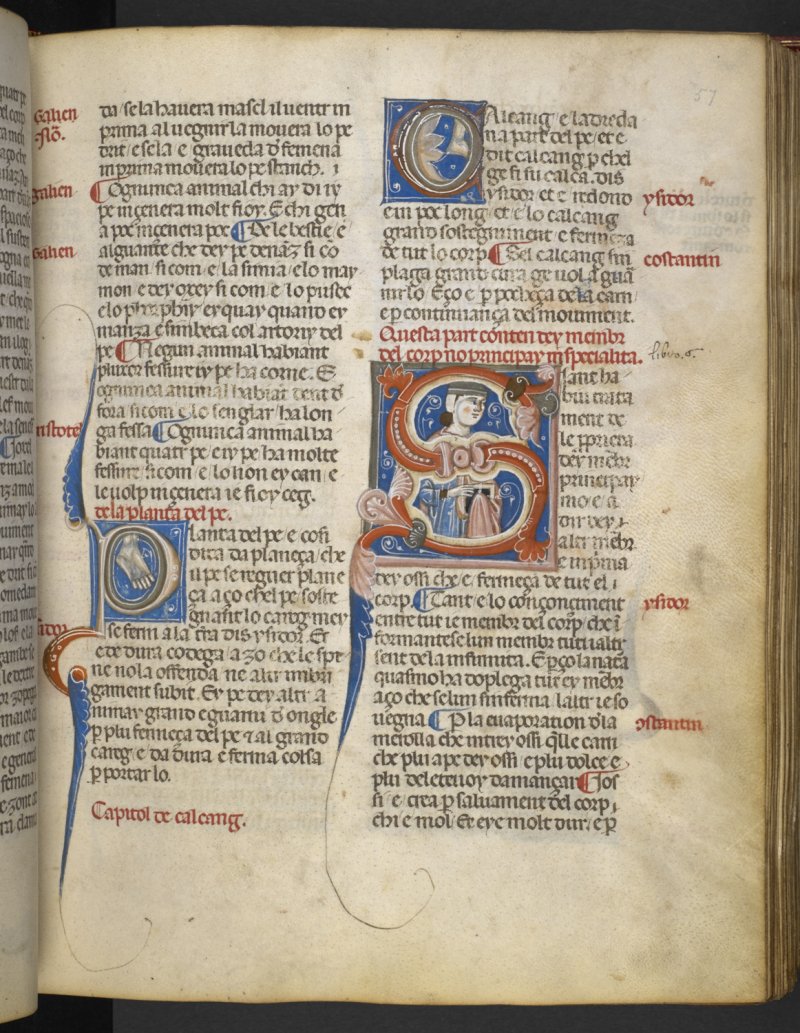 57
da / se la havera mascl il ventr in
prima al vegnir la movera lo pe
drit / e se la e graveda d femena
in prima movera lo pe stanch. i
Ognunca animal chi ay di iy
pe ingenera molt fioy. E chi gen
a poc ingenera poc De le bestie / e
alguante che dey pe denanz si co
de man / si com / e la simia / e lo may
mon / e dey orey si com / e lo pusde
ey quay quand ey
manza / e simbeca col artoriy del
pe Negun animal habiant
pluxor fessure iy pe ha corne. E
ognunca animal habiant dent d
fora si com / e lo senglar / ha lon
ga fessa Ognunca animal ha
biant quatr pe / e iy pe ha molte
fessure / si com / e lo lion ey can / e
le volp ingenera ie fioy ceg.
de la planta del pe.
Planta del pe / e cosi
dita da planeça / che
il pe se reguer plane
ça aço chel pe soste
gnant lo careg mey
se ferm a la tra dis ysidor. Et
e de dura codega / a zo che le spi
ne no la offenda ne altr imbri
gament subit. Ey pe dey altr a
nimay grand e guarni d ongle
p plu fermeça del pe & al grand
careg / e da dura e ferma colsa
p portar lo.
Capitol de calcang.
Galien
galien
galien
aristotel
ysidor
Calcang / e la dreda
na part del pe / et e
dit calcang p chel
ge si fu calca. dis
ysidor et e redond
e un poc long / et e lo calcang
grand sostegniment e fermeza
de tut lo corp Del calcang fin
plaga grand cura ge vol a gua
rir lo. Eço e p pocheça de la carn
e p continuança del moviment.
Questa part conten dey membr
del corp no principay in specialita.
libro. 6.
Siant ha
biu trata
ment de
le ppriera
dey mebr
principay
mo / e a
dir dey i
altr mebr
e in prima
dey ossi che / e fermeça de tut el i
corp. Tant / e lo conçonçiment
entre tut ie membr del corp che i
formante se lun membr tuti i altr
sent de la infirmita. E p ço la nata
quasi no ha doplega tut ey mebr
a ço che se lun sinferma laltr ie so
vegna P la evaporation d la
merolla che intrey ossi qlle carn
che plu a pe dey ossi / e plu dolce e
plu deletevoy da mançar Jos
si / e crea p salvament del corp i
chi e mol Et ey e molt dur / e p
ysidor
costantin
ysidor
costantin